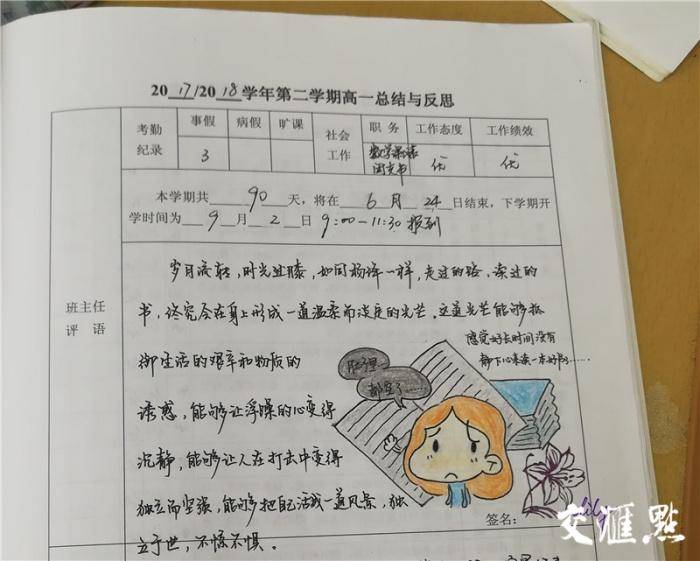 2017/2018学年第二学期高一总结与反思
考勤纪录 事假 病假 旷课 社会工作 职务 工作态度 工作绩效
3 数学课代 团支书 优 优
本学期共 90 天，将在 6 月 24 日结束，下学期开
学时间为 9 月 2 日 9:00-11:30 报到
班主任
评语
岁月流转，时光且膝，如同杨绛一样，走过的路，读过的
书，终究会在身上形成一道温柔而淡定的光芒，这道光芒能够抵
御生活的艰辛和物质的
诱惑，能够让浮躁的心变得
沉静，能够让人在打击中变得
独立而坚强，能够把自己活成一道风景，独
立于世，不惊不惧。
感觉好长时间没有
静下心来读一本好书了……
肚子里
都空了……
签名：
lily
交汇点